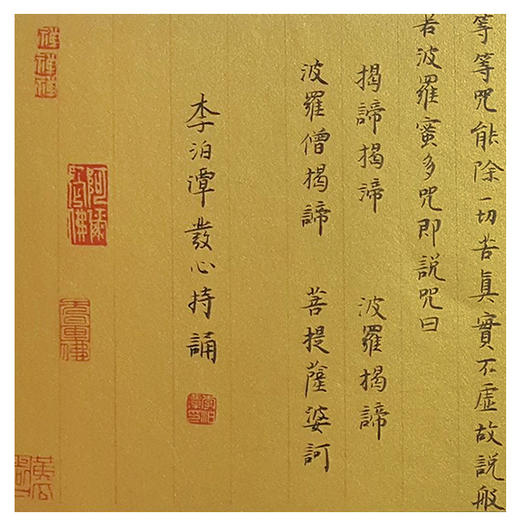 等等咒能除一切苦真實不虛故説般
若波羅蜜多咒即説咒曰
揭諦揭諦 波羅揭諦
波羅僧揭諦 菩提薩婆訶
李泊潭發心持誦